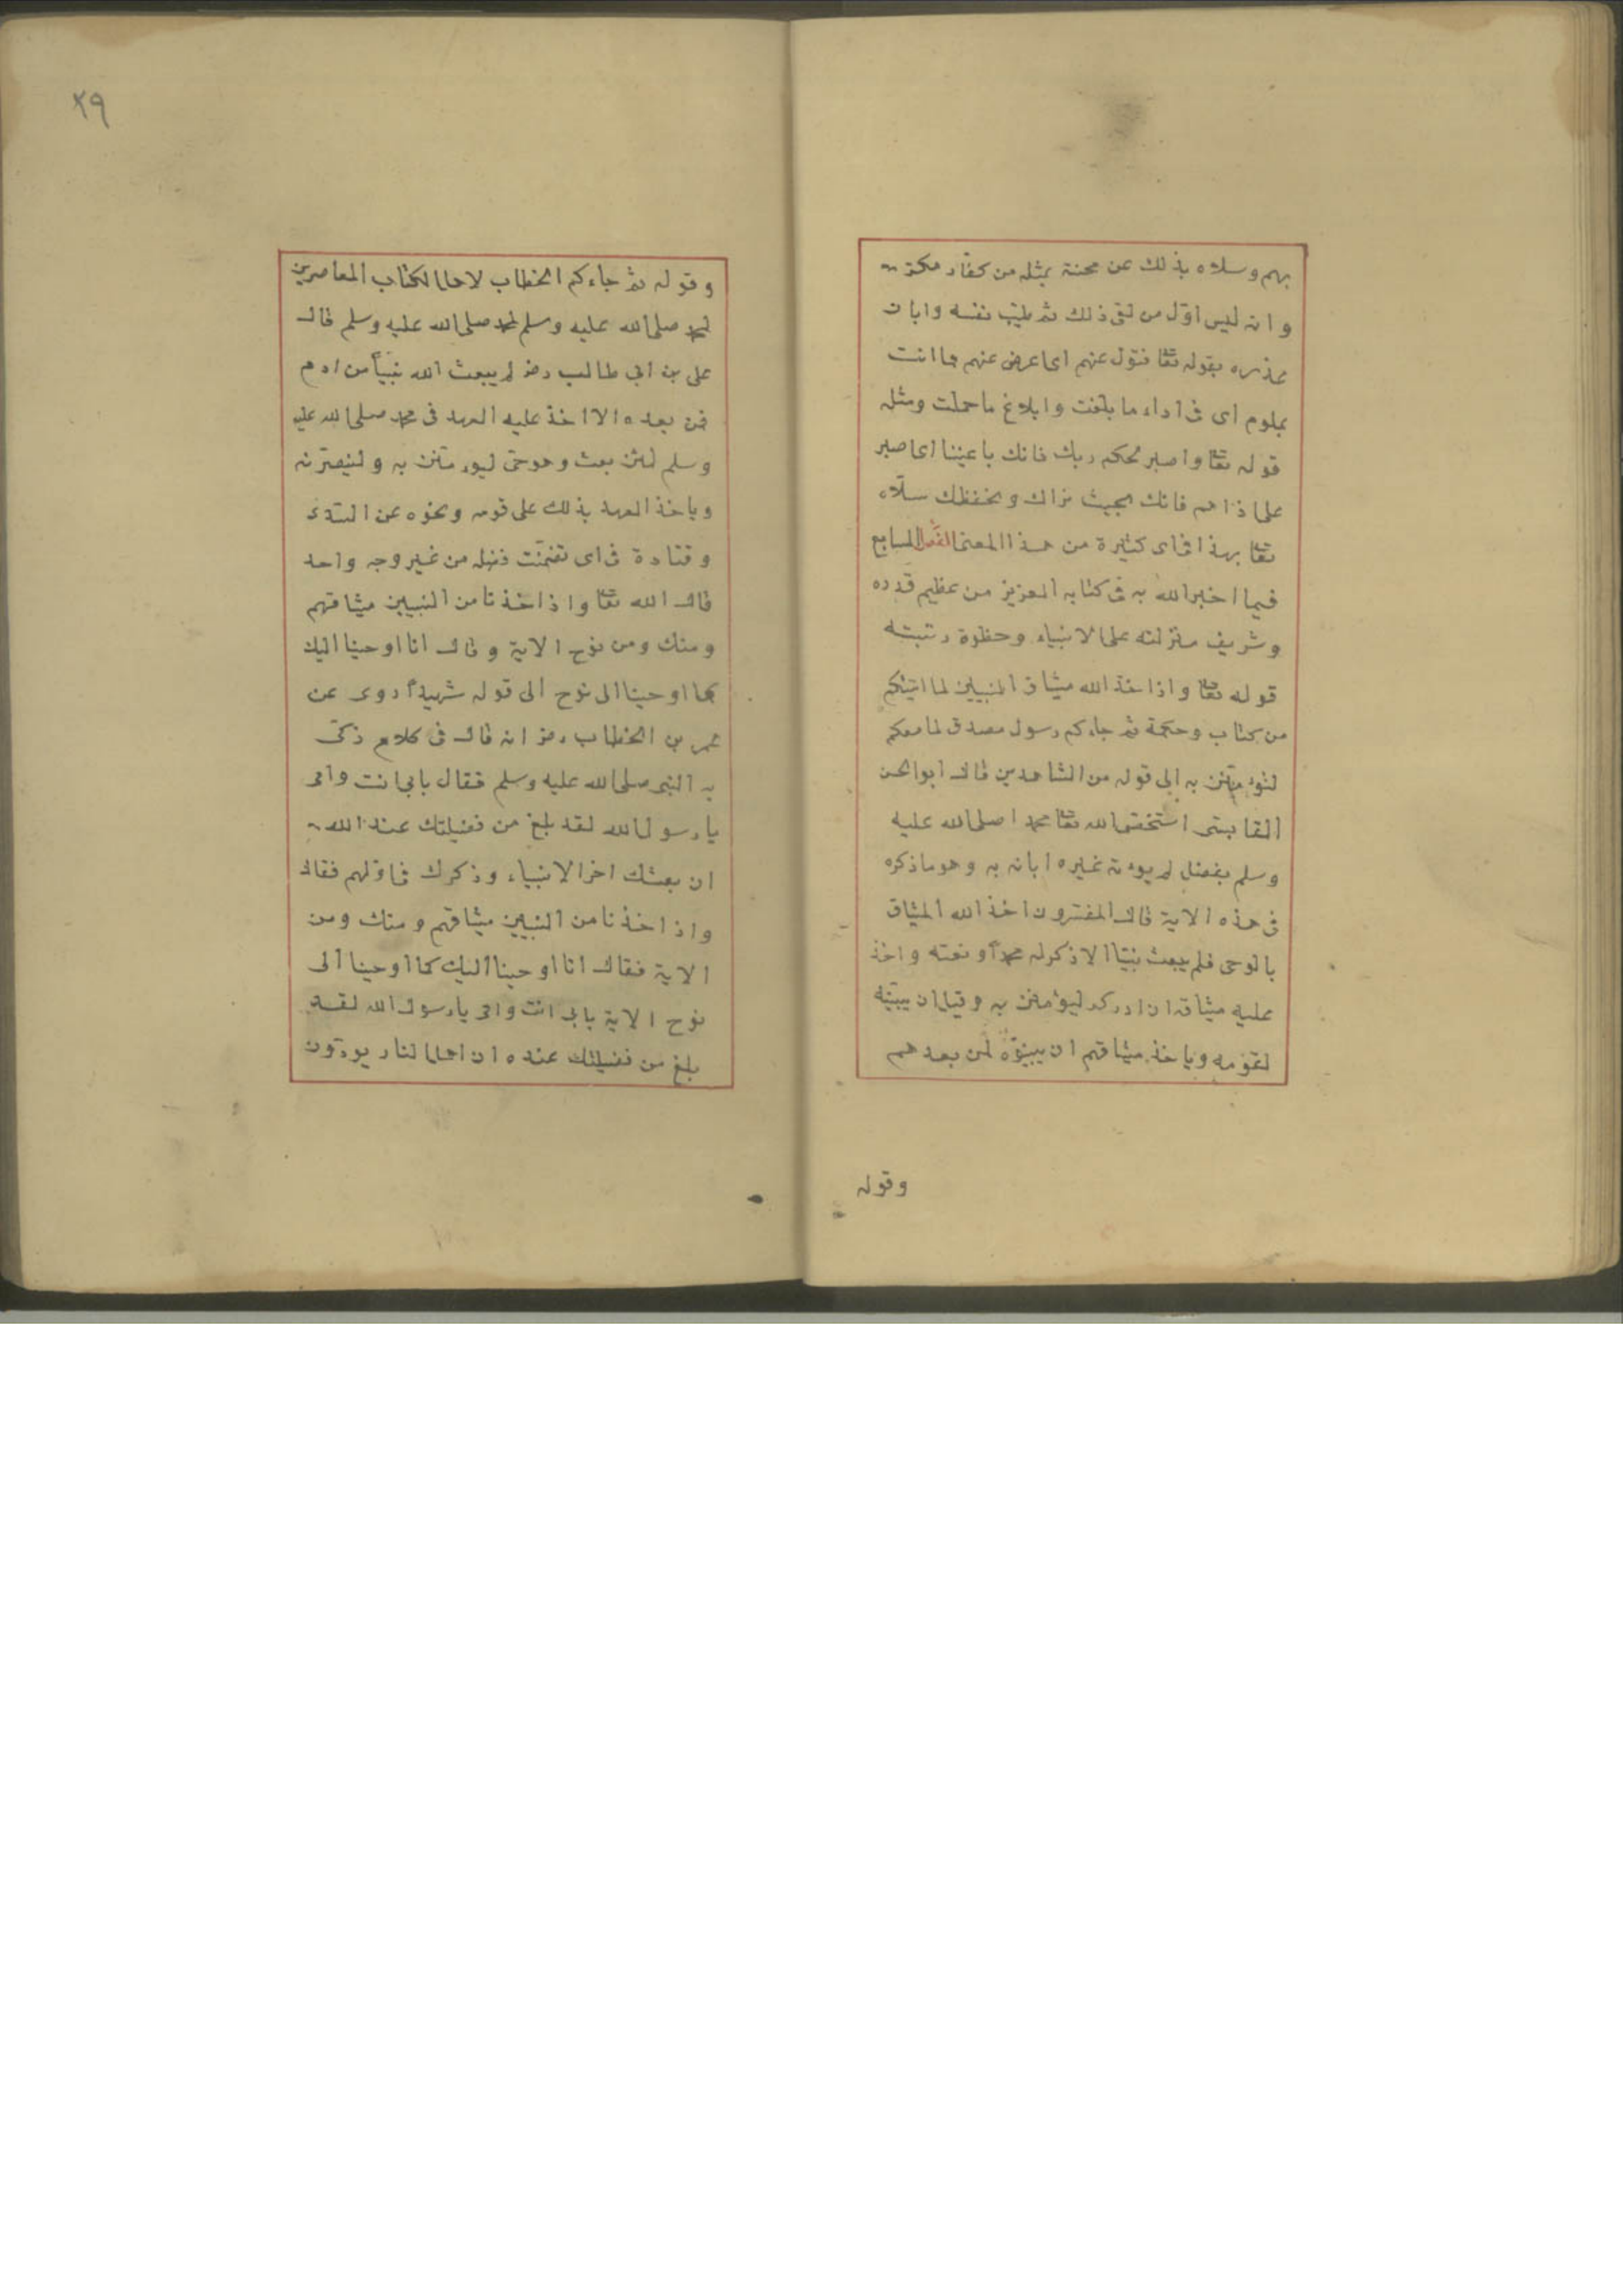 بهم وسلاه بذلك عن محنة بمثله من كفار مكة
وانه ليس اوّل من لقى ذلك ثم طيّب نفسه وابان
عذره بقوله تعا فتول عنهم اى اعرض عنهم فما انت
بملوم اى فى اداء ما بلغت وابلاغ ما حملت ومثله
قوله تعا واصبر لحكم ربك فانك باعيننا اى اصبر
على اذاهم فانك بحيث نراك ونحفظك سلّاه
تعا بهذا فى اى كثيرة من هذا المعنى الفصل السابع
فيما اخبر الله به فى كتابه العزيز من عظيم قدره
وشريف منزلته على الانبياء وحظوة رتبته
قوله تعا واذ اخذ الله ميثاق النبيين لما اتيتكم
من كتاب وحكمة ثم جاءكم رسول مصدق لما معكم
لتؤمنن به الى قوله من الشاهدين قال ابو الحسن
القابسى استختص الله تعا محمدا صلى الله عليه
وسلم بفضل لم يوءته غيره ابانه به وهو ما ذكره
فى هذه الاية قال المفسرون اخذ الله الميثاق
بالوحى فلم يبعث نبيّا الا ذكر له محمداً ونعته واخذ
عليه ميثاقه ان ادركه ليؤمنن به وقيل ان يبيّنه
لقومه وياخذ ميثاقهم ان يبينوّه لمن بعدهم
وقوله
٢٩
وقوله ثم جاءكم الخطاب لاهل الكتاب المعاصرين
لمحمد صلى الله عليه وسلم لمحمد صلى الله عليه وسلم قال
على بن ابى طالب رضى لم يبعث الله نبيّاً من ادم
فمن بعده الا اخذ عليه العهد فى محمد صلى الله عليه
وسلم لئن بعث وهو حىّ ليوءمنن به ولينصرنه
وياخذ العهد بذلك على قومه ونحوه عن السّدى
وقتادة فى اى تضمّنت فضله من غير وجه واحد
قال الله تعا واذ اخذنا من النبيين ميثاقهم
ومنك ومن نوح الاية وقال انا اوحينا اليك
كما اوحينا الى نوح الى قوله شهيداً روى عن
عمر بن الخطاب رضى انه قال فى كلام بكى
به النبى صلى الله عليه وسلم فقال بابى انت وامى
يا رسول الله لقد بلغ من فضيلتك عند الله
ان بعثك اخر الانبياء وذكرك فى اوّلهم فقال
واذ اخذنا من النبيين ميثاقهم ومنك ومن
الاية فقال انا اوحينا اليك كما اوحينا الى
نوح الاية بابى انت وامى يا رسول الله لقد
بلغ من فضيلتك عنده ان اهل النار يودّون